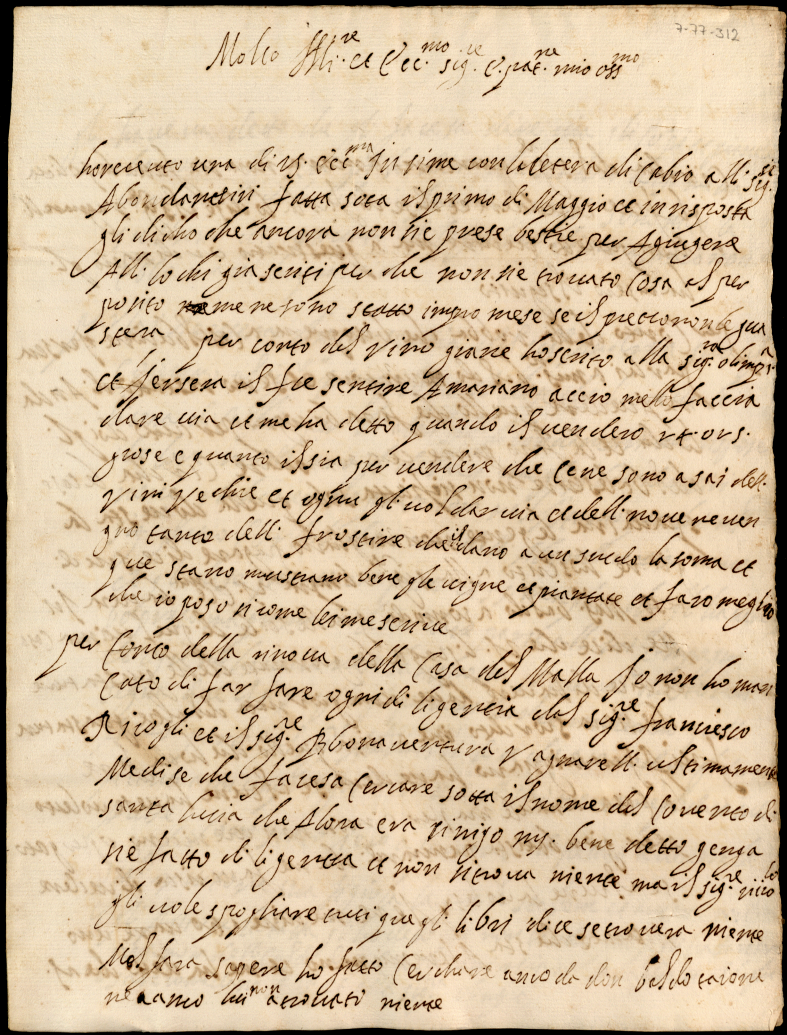 7-77-312
Molto Ill.re et Ecc.mo sig.re e pat.ne mio oss.mo
ho receuto una di vs. Ecc.ma Insime con letera di Cabio all. sig.re
Abondansini fatta sota il primo di Maggio et in risposta
gli dicho che ancora non sie prese bestie per Agiugere
All. lochi gia scriti per che non sie trovato Cosa al per
posito ne me ne sono statto impro mese se il
stera per conto del vino giane ho scrito alla sig.ra olimpia
et Jersera il fce sentire Amariano accio melo faccia
dare via et me ha detto quando il vendero
pose e quanto il sia per vendere che Cene sono asai dell.
vini vechie et ognu gli vol dar via et dell. nove ne ven
gno tanto dell. frostire che il dano a un scudo la soma et
que stano mustrano bene gle vigne et piantate et faro meglio
che io poso sicome lei me scrive
per Conto della rinova della Casa del Matta Jo non ho man
Cato di far fare ogni di ligencia dal sig.re francesco
Ricogli et il sig.re Abonaventura vagnarell. ultimamente
Me dise che facesa Cercare sotta il nome del Covento di
santa lucia che Alora era
sie fatto di ligentia et non ritrova niente ma il sig.re
gli vole spogliare tuti quegli libri dice se trovera niente
Mel fara sapere ho fatto Cerchare anco da don
ne anco lui non a trovato niente